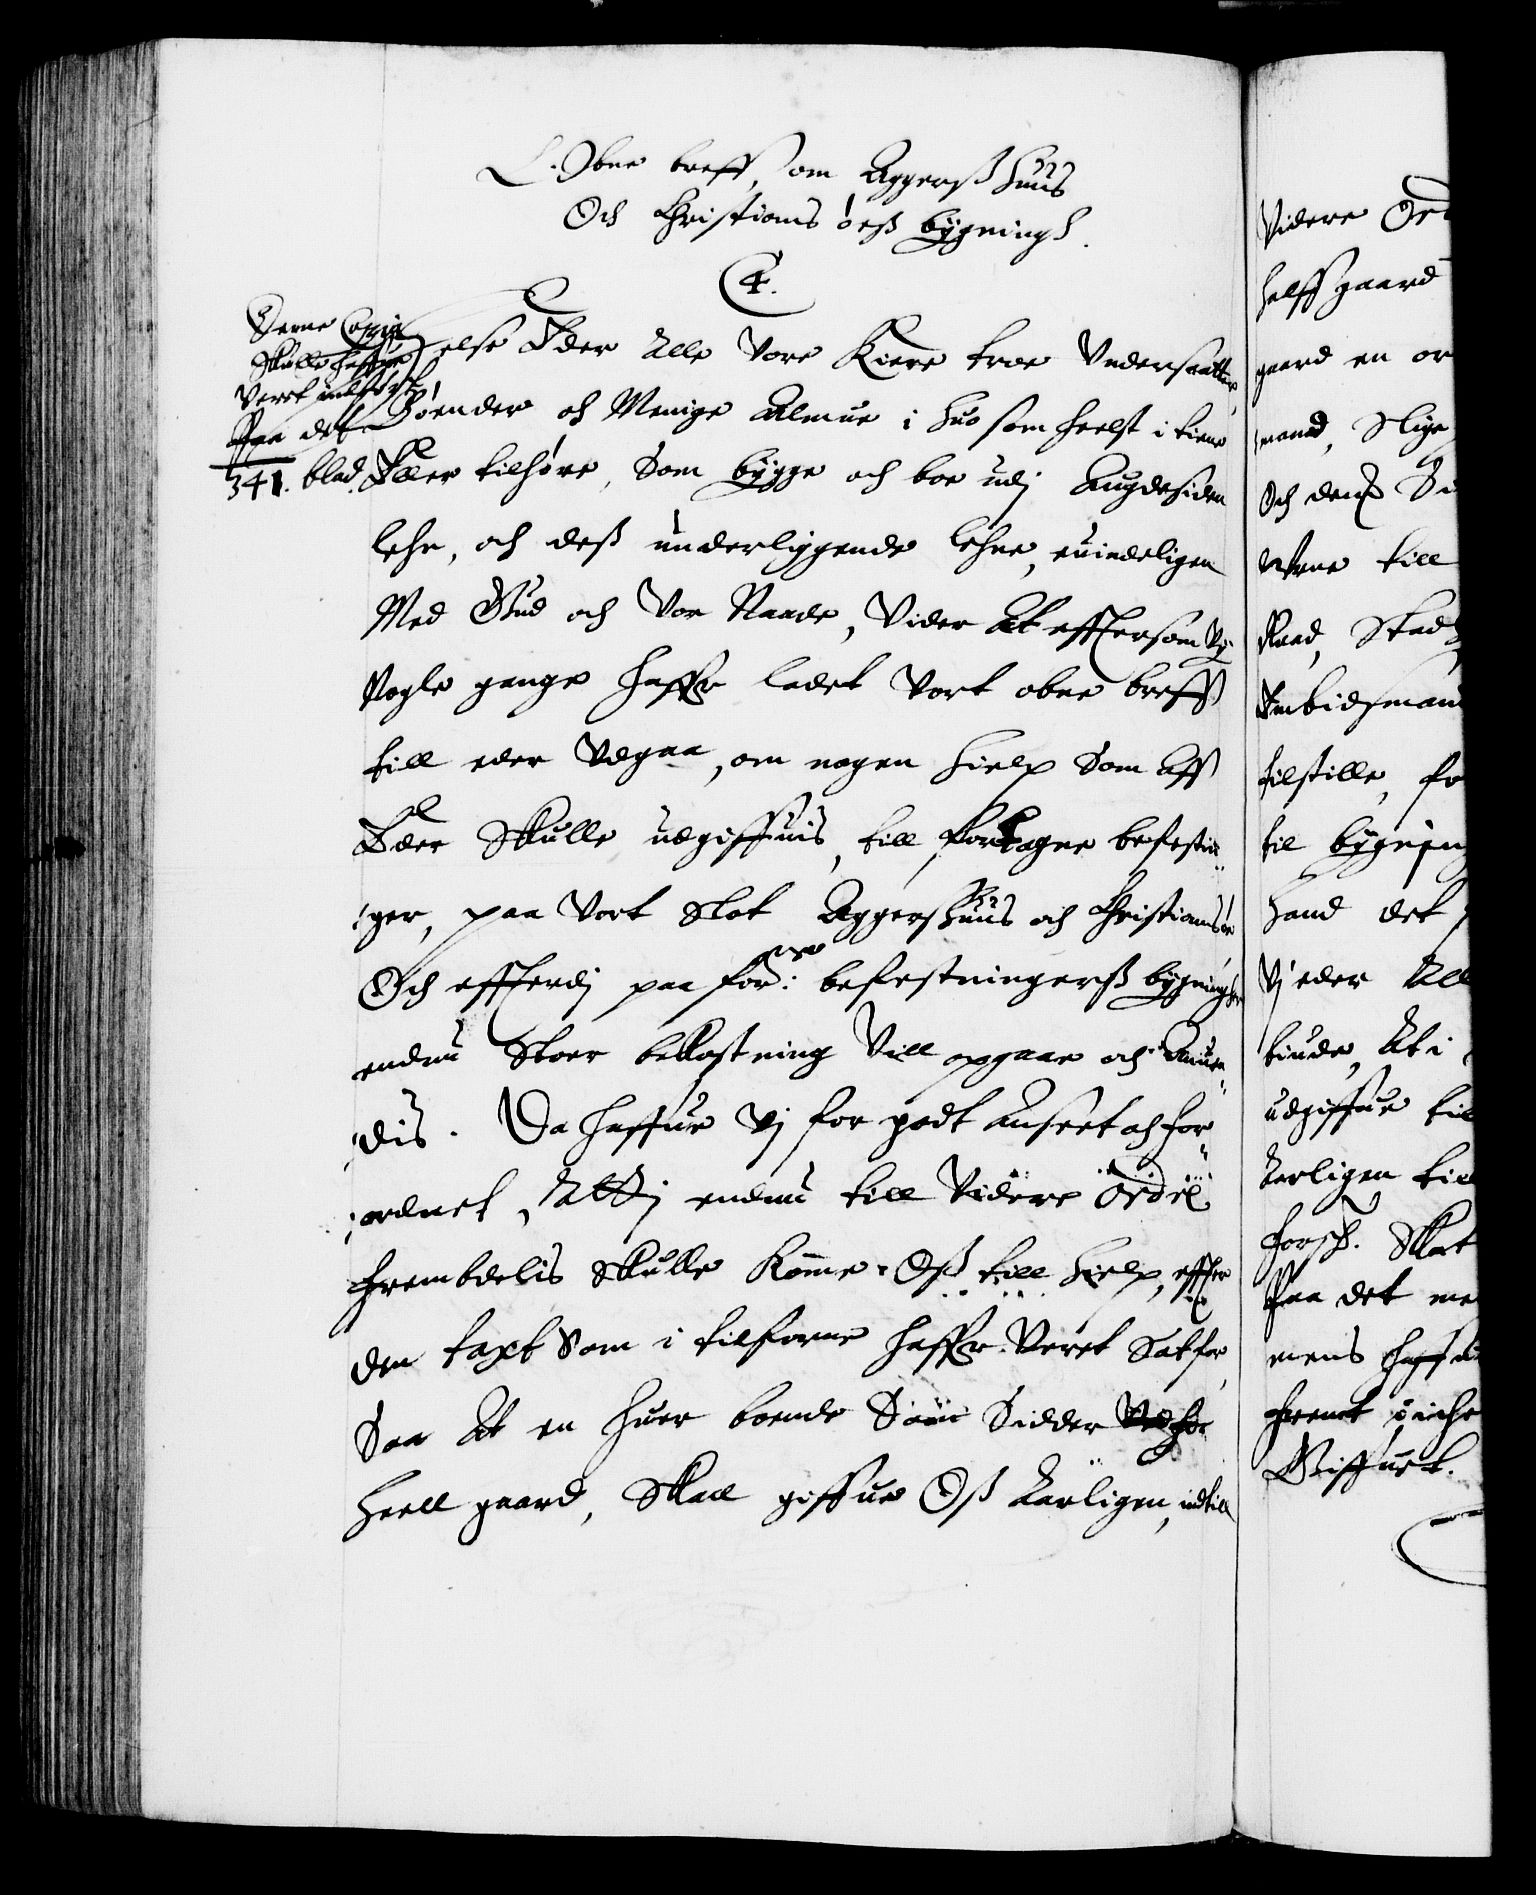 Obne breff, om Aggerß huus
Och Christians öeß bÿgningh.
C4.
Denne Copia
skulle haffue
veret indfört
Paa det
341. blad.
Helse Eder Alle Vore Kiere troe Vndersaatter,
Bönder och Menige Almue i huo som helst i tiene
Eller tilhöre, Som bÿgge och boe udj Augdesiden
lehn, och deß underliggende lehne, euindeligen
Med Gud och Vor Naade, Vider At effttersom Vj
Nogle gange haffr ladet Vort obne breff
till eder Vdgaa, om nogen hielp Som Aff
Eder Skulle udgiffuis, till fortagne befestnin
ger, paa Vort Slot Aggershuus och Christiansöe
Och effterdj paa forne: befestningerß bÿgninger
endnu Stoer bekostning Vill opgaae och Anuen
dis. Da haffue Vj for godt anseet och for
ordnet, At i endnu till Videre
frembdelis Skulle Komme Oß till hielp, effter
den taxt Som i tilforne haffr Veret Sat for,
Saa At en huer boende Som Sidder for
heell gaard, Skall giffue Oß Aarligen, indtill
Videre Ord
halff gaard
gaard en or
mand, Slige
Och dennß
till
Raad, Stad
Embidsmand
tilstille, for
til bÿgning
hand det
Vj eder All
biude, At i
udgiffue till
Aarligen till
forsch. Skat
Paa det me
mens haffue
fremt i iche
Giffuet.